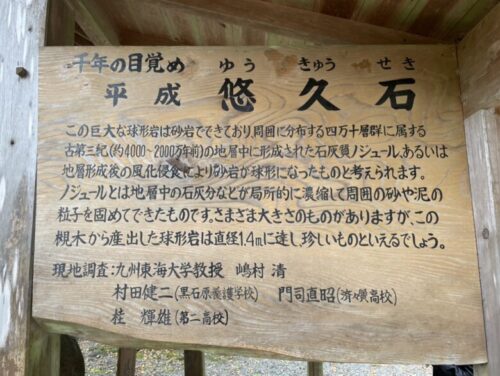 千年の目覚め ゆう きゅう せき
平成 悠久石
この巨大な球形岩は砂岩でできており周囲に分布する四万十層群に属する
古第三紀(約4000~2000万年前)の地層中に形成された石灰質ノジュール、あるいは
地層形成後の風化侵食により砂岩が球形になったものと考えられます。
ノジュールとは地層中の石灰分などが局所的に濃縮して周囲の砂や泥の
粒子を固めてできたものです。さまざま大きさのものがありますが、この
槻木から産出した球形岩は直径1.4mに達し、珍しいものといえるでしょう。
現地調査:九州東海大学教授 嶋村 清
村田健二(黒石原養護学校) 門司直昭(済々黌高校)
桂 輝雄(第二高校)